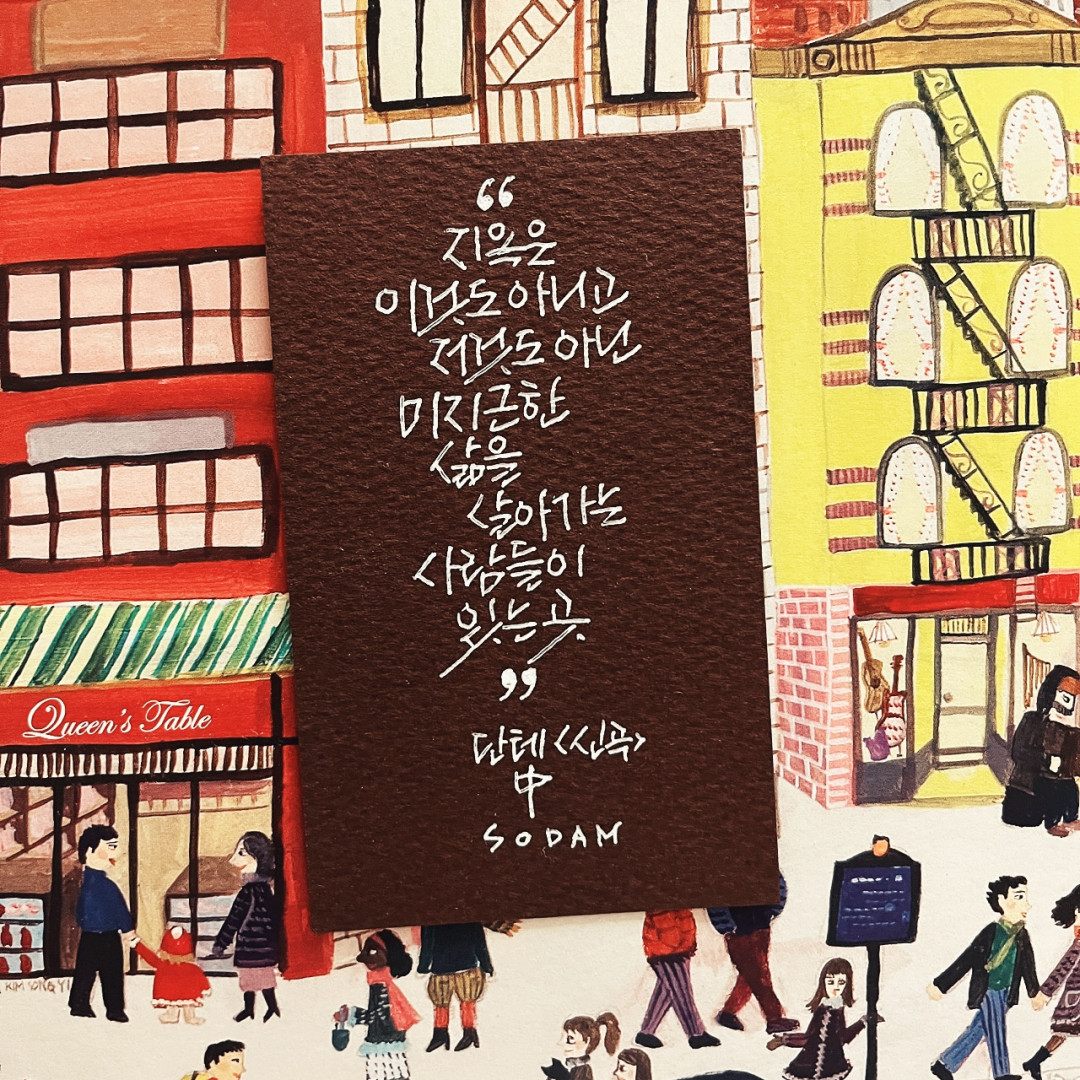 “
지옥은
이것도 아니고
저것도 아닌
미지근한
삶을
살아가는
사람들이
있는 곳.
”
단테 <신곡>
中
SODAM
Queen's Table